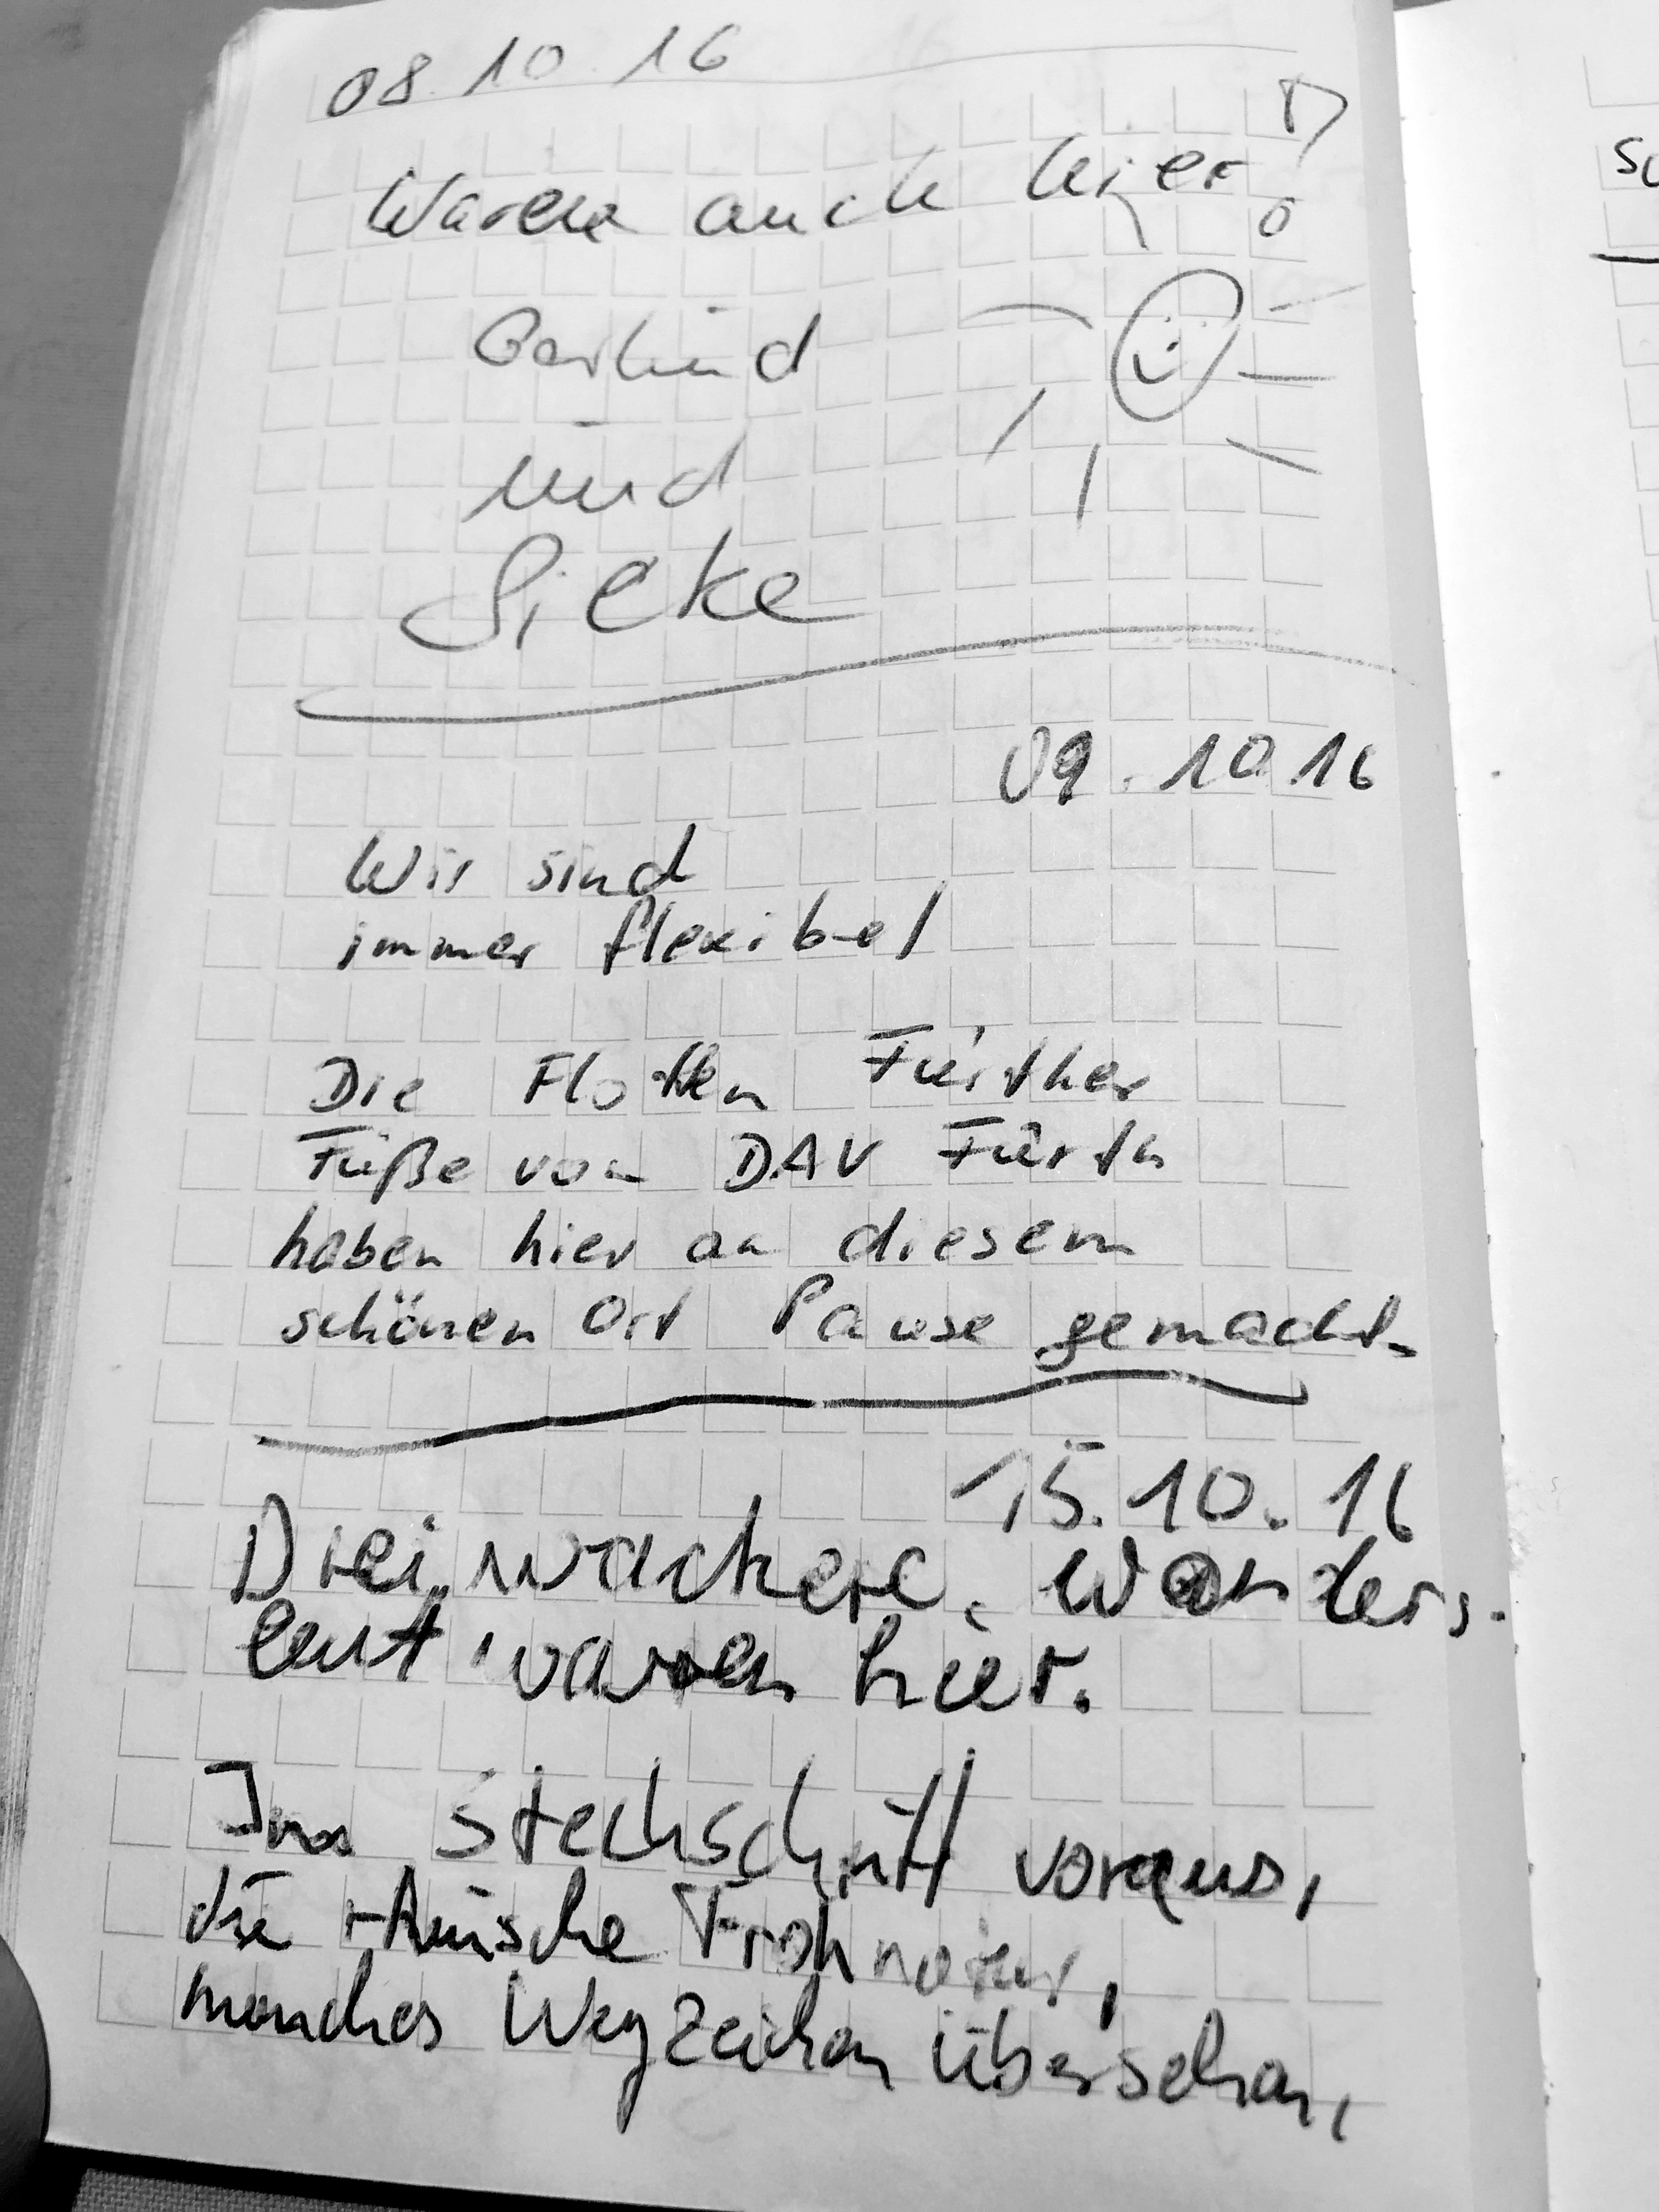 08.10.16
Waren auch hier!
Gerlind
und
Silke
09.10.16
Wir sind
immer flexibel
Die Flotten Fürther
Füße vom DAV Fürth
haben hier an diesem
schönen Ort Pause gemacht.
15.10.16
Drei wackere Wanders-
leut waren hier.
Im Stechschritt voraus,
die rheinische Frohnatur,
manches Wegzeichen übersehen,